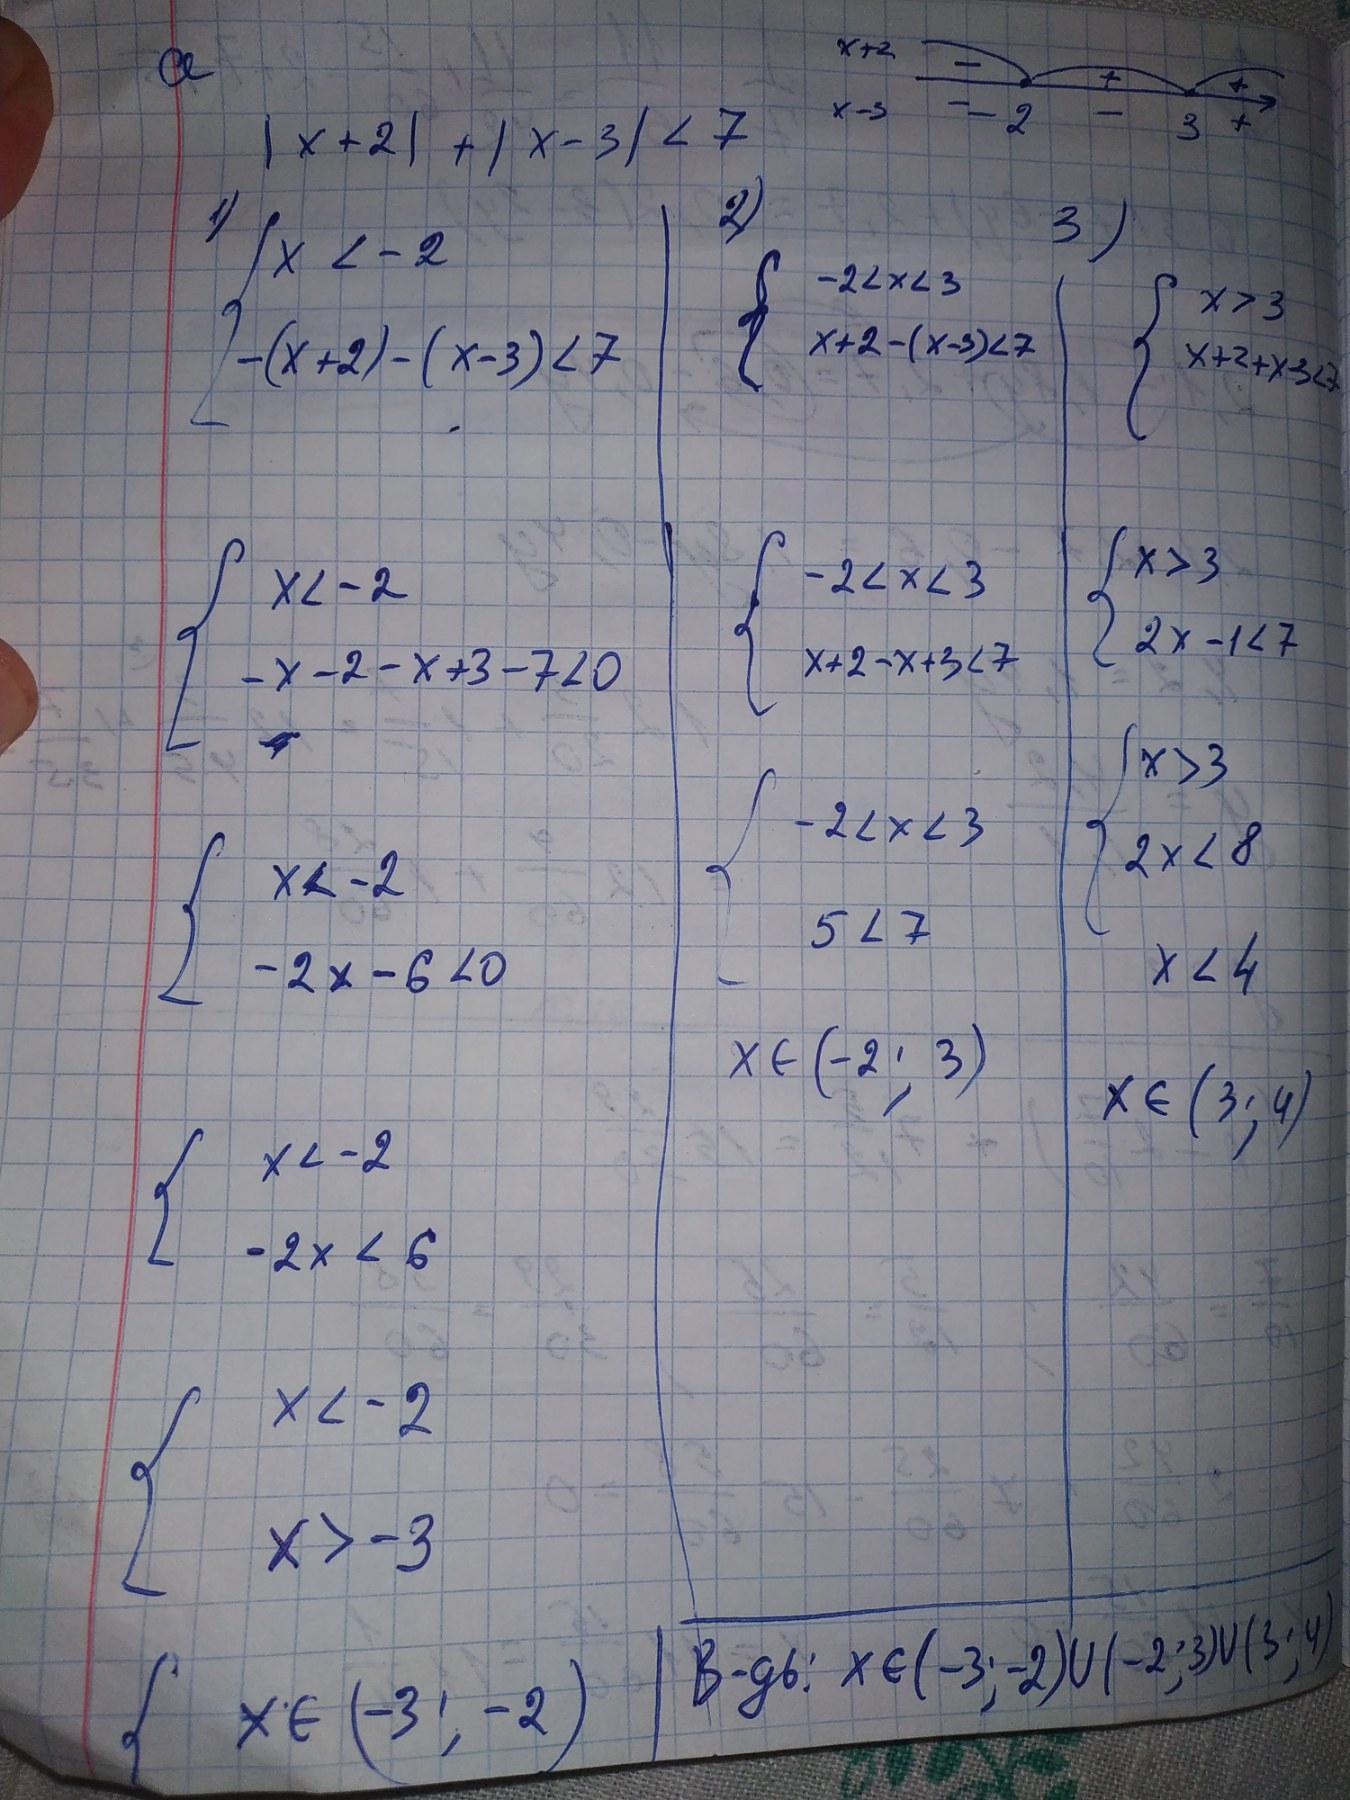 a
x+2 - + +
x-3 - -2 - 3 +
|x+2| + |x-3| < 7
1)
x < -2
-(x+2)-(x-3)<7
x<-2
-x-2-x+3-7<0
x<-2
-2x-6<0
x<-2
-2x<6
x<-2
x>-3
x∈(-3; -2)
2)
-2<x<3
x+2-(x-3)<7
-2<x<3
x+2-x+3<7
-2<x<3
5<7
x∈(-2; 3)
3)
x>3
x+2+x-3<7
x>3
2x-1<7
x>3
2x<8
x<4
x∈(3; 4)
В-дь: x∈(-3;-2)U(-2;3)U(3;4)